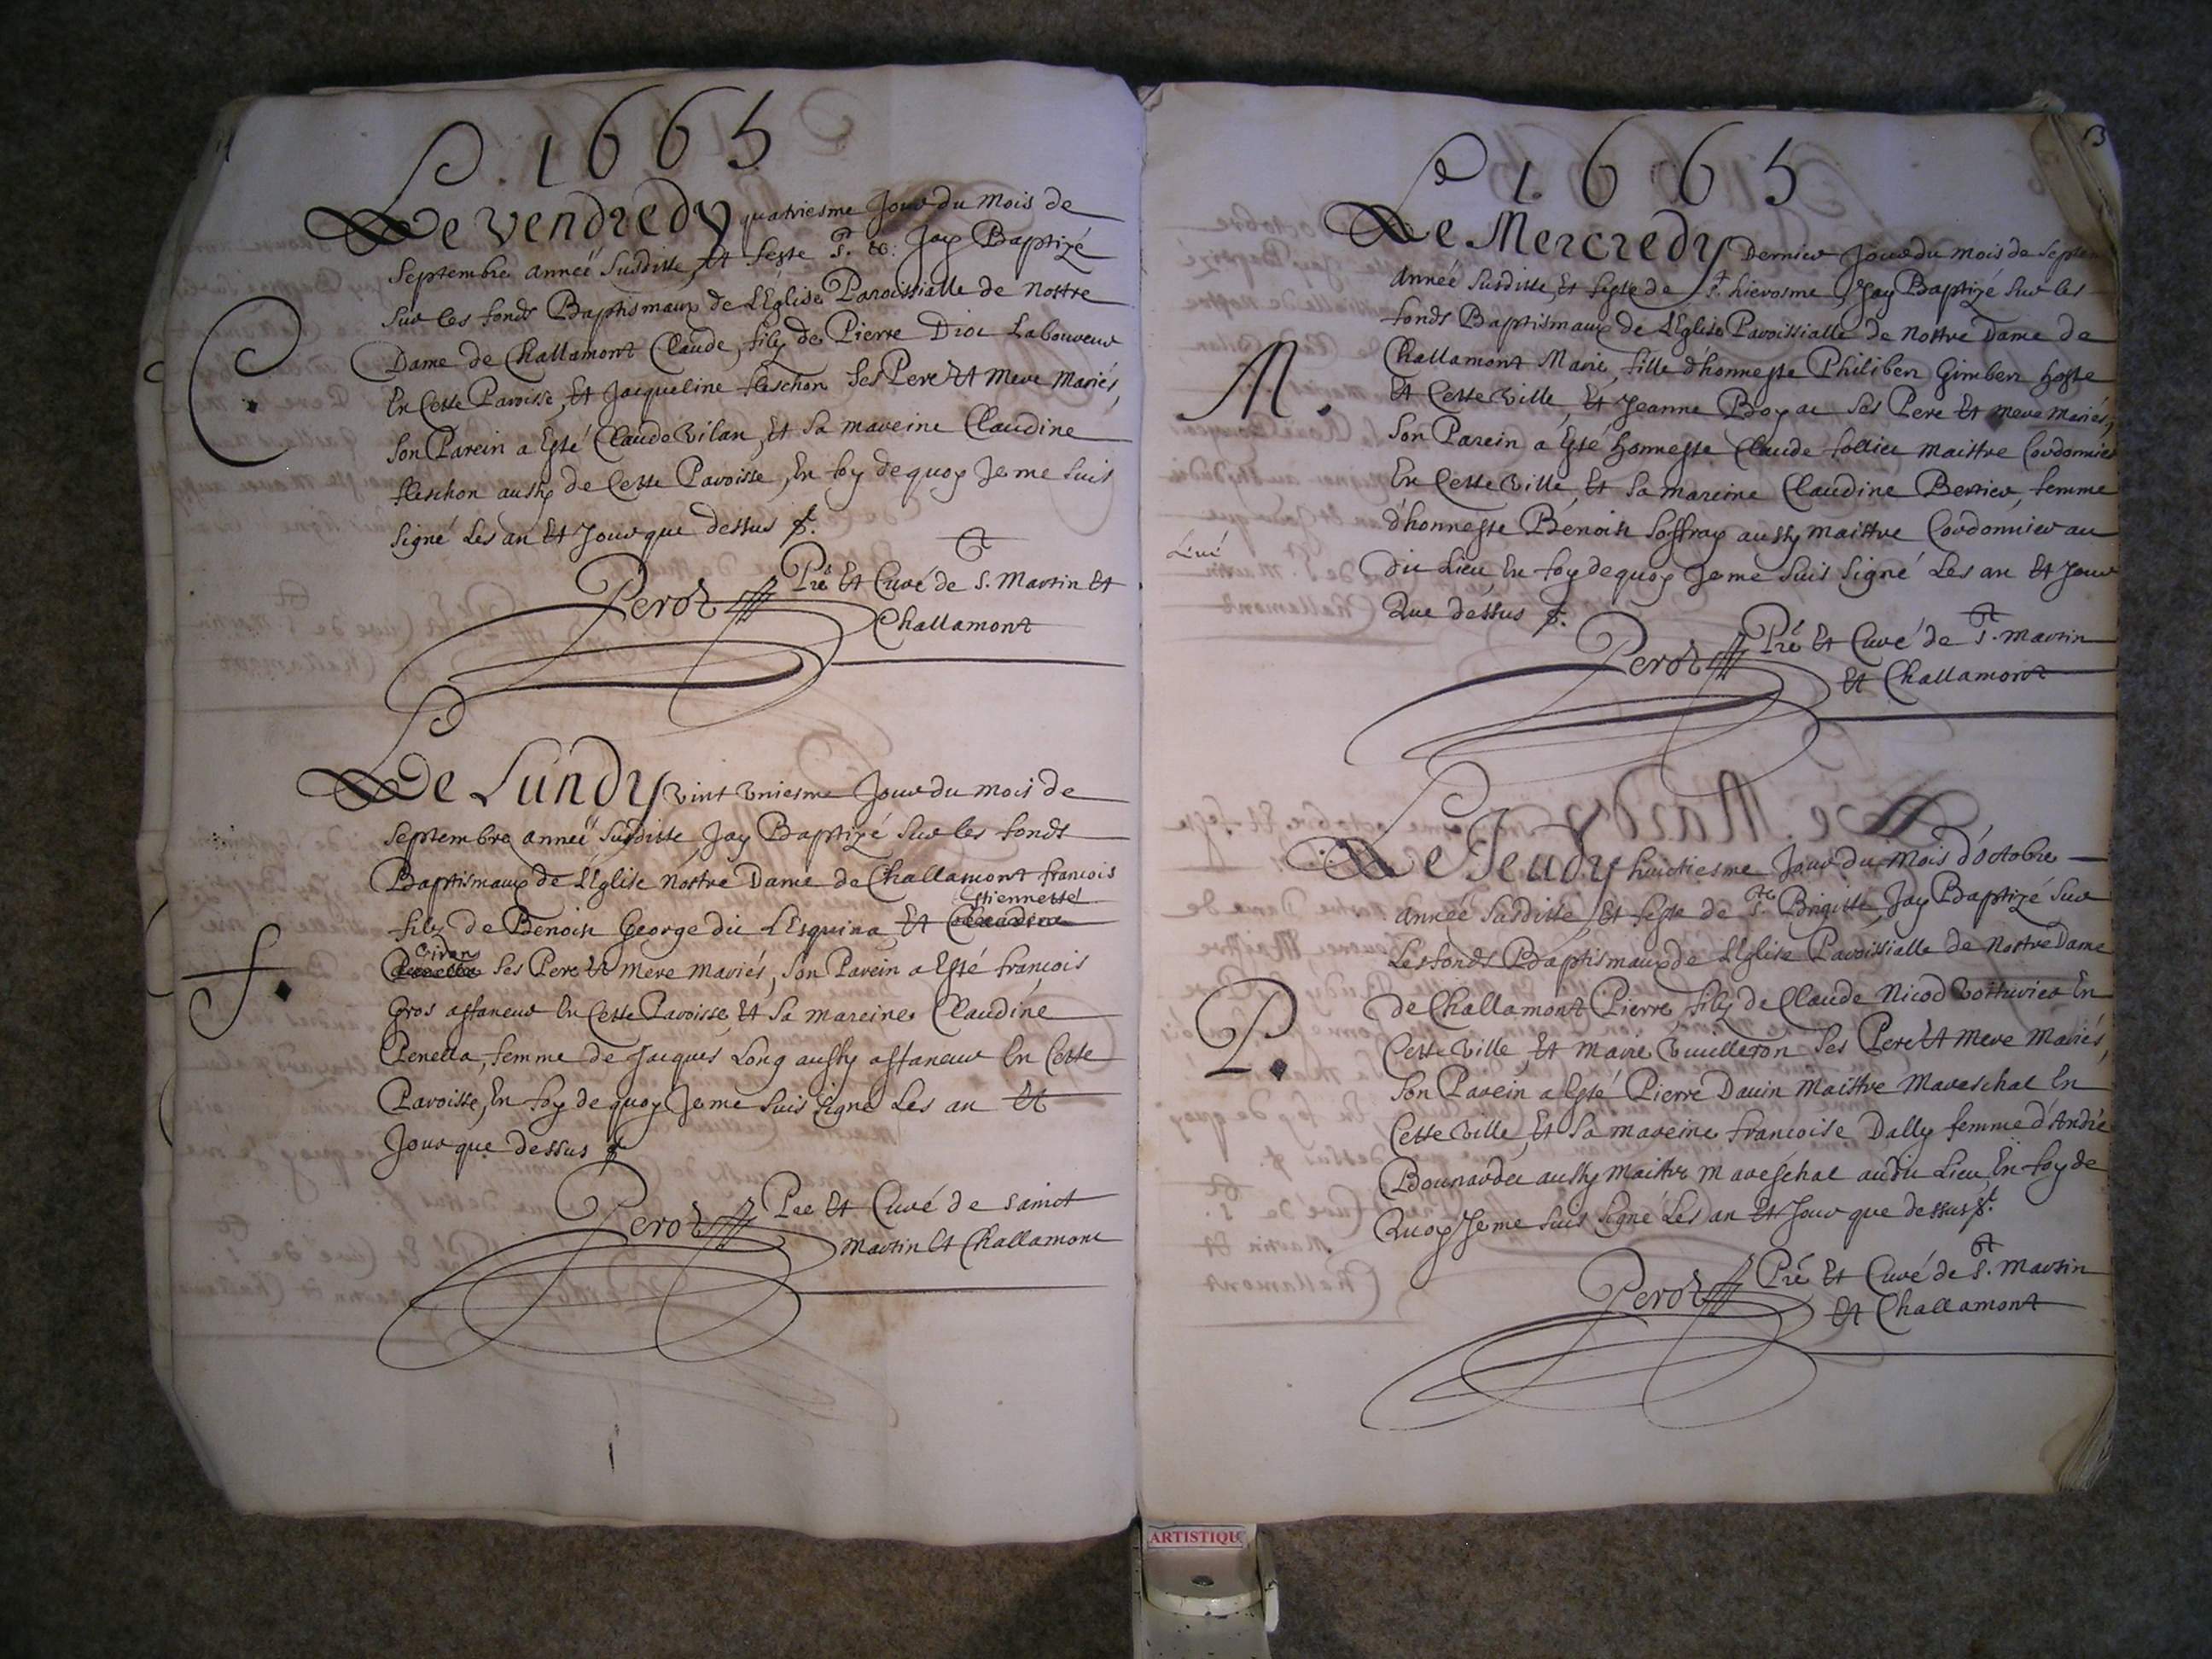 1665
Le Vendredy quatriesme Jour du Mois de
Septembre anneé Susditte, Et feste Jay Baptizé
Sur les fonds Baptismaux de L'Eglise Paroissialle de Nostre
Dame de Challamont Claude, filz de Pierre Dioc Laboureur
En Cette Paroisse, Et Jacqueline fleschon Ses Pere Et Mere Mariés,
Son Parein a Esté Claude Vilan, Et Sa mareine Claudine
fleschon aussy de Cette Paroisse, En foy de quoy Je me Suis
Signé Les an Et Jour que dessus
C.
Perot Pre Et Curé de St. Martin Et
Challamont
Le Lundy vint uniesme Jour du mois de
Septembre anneé Susditte Jay Baptizé Sur les fonds
Baptismaux de L'Eglise Nostre Dame de Challamont francois
Estiennette
filz de Benoist George dit L'Esquina, Et Claudine
Ses Pere Et Mere Mariés, Son Parein a Esté francois
Gros affaneur En Cette Paroisse, Et Sa mareine Claudine
Penella, femme de Jacques Long aussy affaneur En Cette
Paroisse, En foy de quoy Je me Suis Signé Les an Et
Jour que dessus
f.
Perot Pre Et Curé de Sainct
Martin Et Challamont
1665
Le Mercredy Dernier Jour du mois de Septem
Anneé Susditte, Et feste de St. hierosme Jay Baptizé Sur les
fonds Baptismaux de L'Eglise Paroissialle de Nostre Dame de
Challamont Marie, fille d'honneste Philibert Gimbert hoste
Et Cette Ville, Et Jeanne Boyat Ses Pere Et Mere Mariés,
Son Parein a Esté honneste Claude follier Maistre Cordonnier
En Cette Ville, Et Sa mareine Claudine Bernier, femme
d'honneste Benoist Soffray aussy Maistre Cordonnier au
dit Lieu, En foy de quoy Je me Suis Signé Les an Et Jour
Que dessus
M.
Perot Pre Et Curé de St. Martin
Et Challamont
Le Jeudy huictiesme Jour du Mois d'octobre
anneé Susditte, Et feste de Ste. Brigitte, Jay Baptizé Sur
Les fonds Baptismaux de L'Eglise Paroissialle de Nostre Dame
de Challamont Pierre, filz de Claude Nicod Voiturier En
Cette Ville, Et Marie Vuilleron Ses Pere Et Mere Mariés,
Son Parein a Esté Pierre Dauin Maistre Mareschal En
Cette Ville, Et Sa mareine francoise Dally femme d'André
Bounardet aussy Maistre Mareschal audit Lieu, En foy de
Quoy Je me Suis Signé Les an Et Jour que dessus
P.
Perot Pre Et Curé de St. Martin
Et Challamont
ARTISTIQU